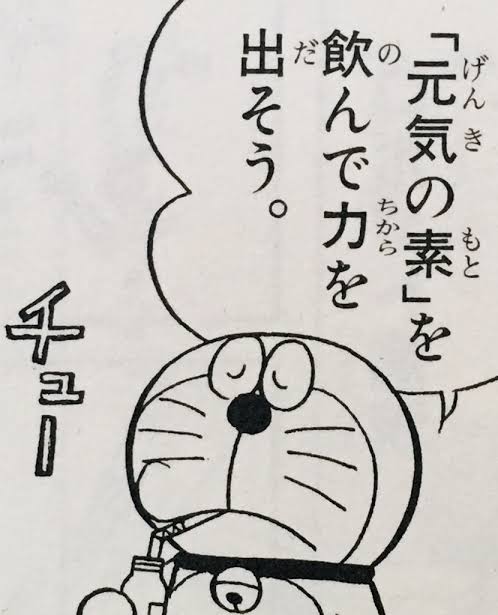 「元気の素」を
飲んで力を
出そう。
チュー